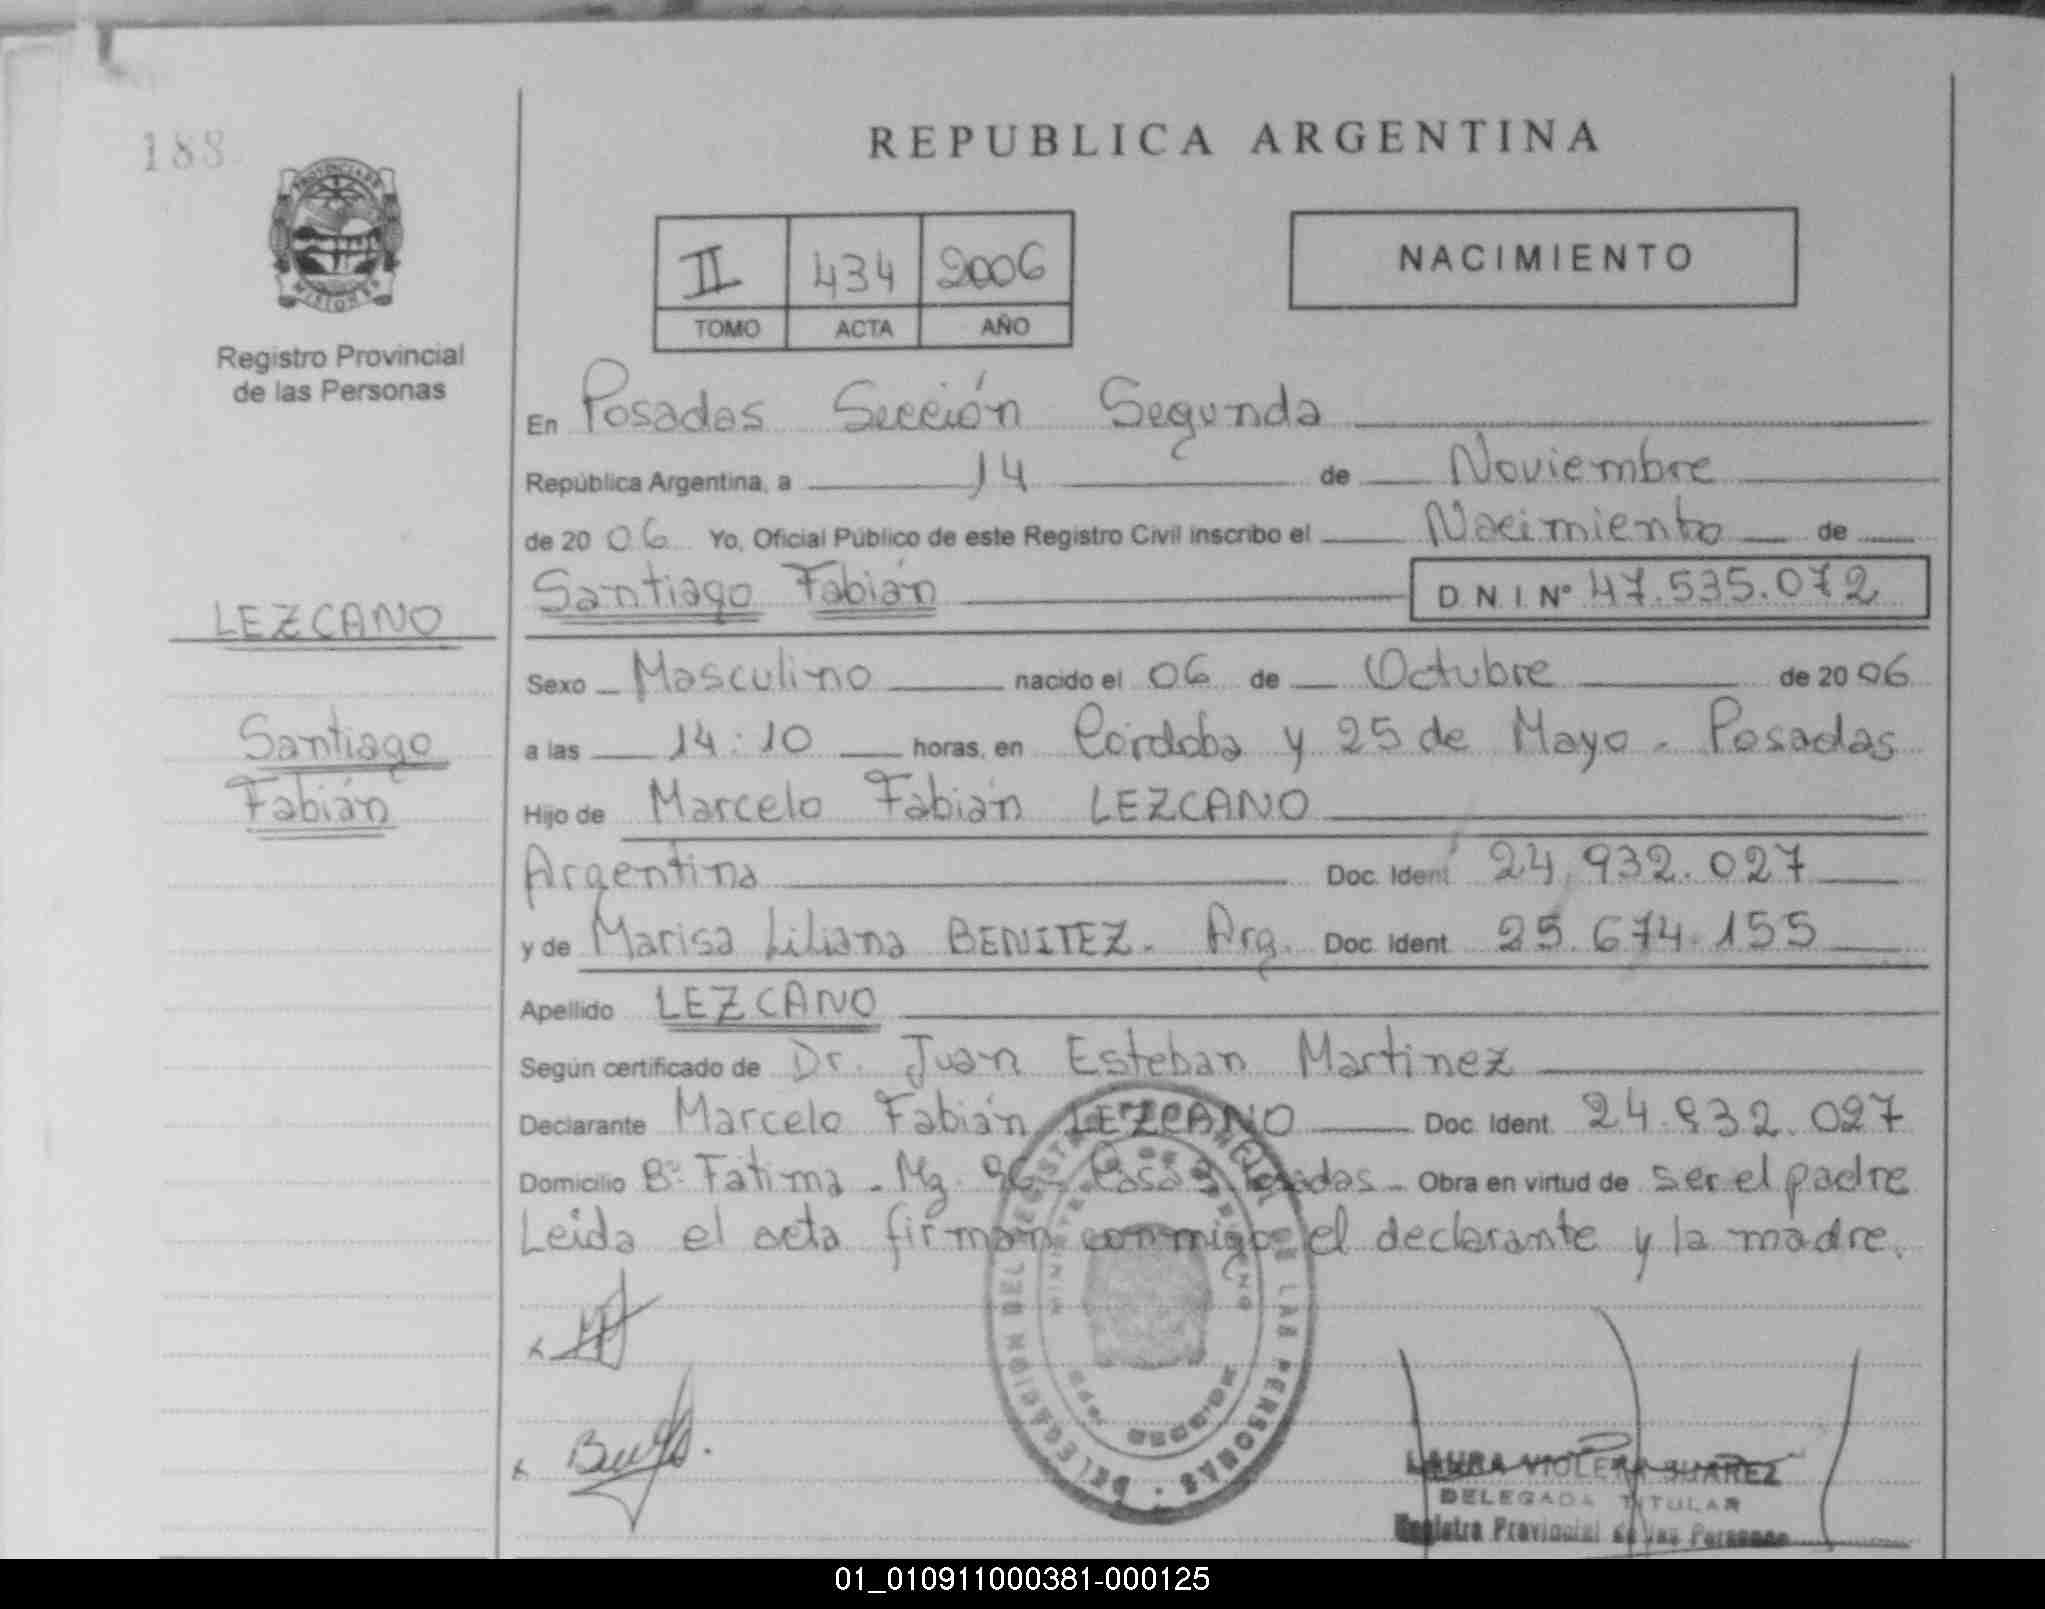 188
PROVINCIA DE
MISIONES
Registro Provincial
de las Personas
REPUBLICA ARGENTINA
II 434 2006
TOMO ACTA AÑO
NACIMIENTO
En Posadas Sección Segunda
República Argentina, a 14 de Noviembre
de 20 06 Yo, Oficial Público de este Registro Civil inscribo el Nacimiento de
Santiago Fabián D.N.I. Nº 47.535.072
LEZCANO
Santiago
Fabián
Sexo Masculino nacido el 06 de Octubre de 20 06
a las 14:10 horas, en Córdoba y 25 de Mayo - Posadas
Hijo de Marcelo Fabián LEZCANO
Argentina Doc. Ident 24.932.027
y de Marisa Liliana BENITEZ - Arg. Doc. Ident. 25.674.155
Apellido LEZCANO
Según certificado de Dr. Juan Esteban Martinez
Declarante Marcelo Fabián LEZCANO Doc. Ident. 24.932.027
Domicilio Bº Fátima - Mz. Casa Posadas - Obra en virtud de ser el padre
Leida el acta firman conmigo el declarante y la madre.
DELEGACION DEL REGISTRO PROVINCIAL DE LAS PERSONAS
MINISTERIO DE GOBIERNO
LAURA VIOLETA SUAREZ
DELEGADA TITULAR
Registro Provincial de las Personas
01_010911000381-000125